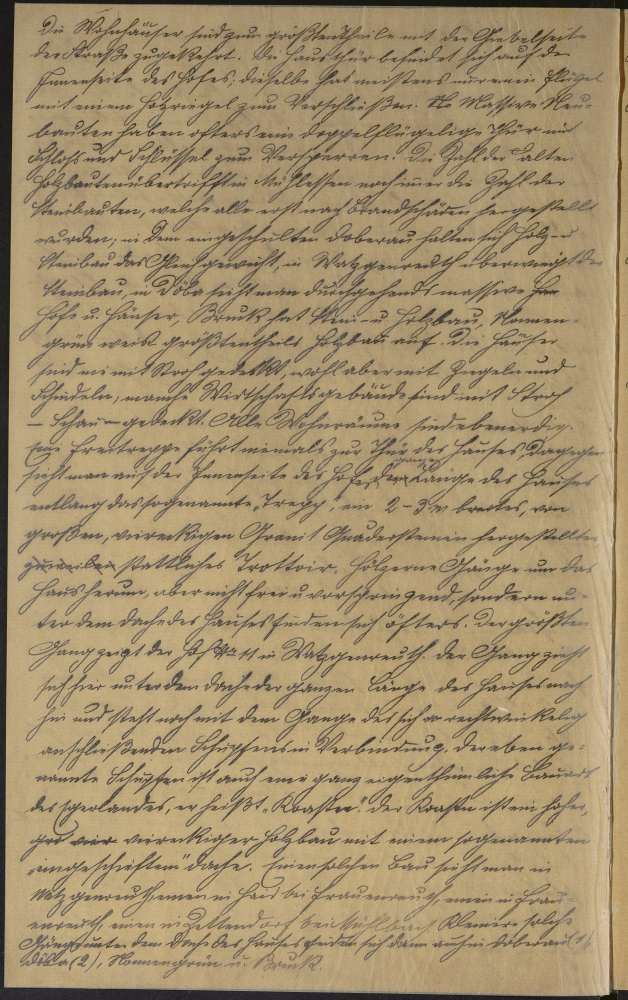 Die Wohnhäuser sind zum größtentheile mit der Giebelseite
der Straße zugekehrt. Die Hausthür befindet sich auf der
Innenseite des Hofes, dieselbe hat meistens nur einen Flügel
mit einem Holzriegel zum Verschließen. Massive Neu-
bauten haben öfters eine doppelflügelige Thür mit
Schloß und Schlüssel zum Versperren. Die Zahl der alten
Holzbauten übertrifft in Mühlessen noch immer die Zahl der
Steinbauten, welche alle erst nach Brandschäden hergestellt
wurden; in dem eingeschulten Doberau halten sich Holz- u
Steinbau das Gleichgewicht, in Watzgenreuth überwiegt der
Steinbau, in Döba sieht man durchgehends massive
Höfe u. Häuser, Bruck hat Stein- u Holzbau, Nonnen-
grün weist größtentheils Holzbau auf. Die Häuser
sind nie mit Stroh gedeckt, wohl aber mit Ziegeln und
Schindeln, manche Wirtschaftsgebäude sind mit Stroh
– Schau – gedeckt. Alle Wohnräume sind ebenerdig.
Eine Freitreppe führt niemals zur Thür des Hauses dagegen
sieht man auf der Innenseite des Hofes, der ganzen Länge des Hauses
entlang das sogenannte "Trepp", ein 2-3 m breites, von
großen, viereckigen Granit Quadersteinen hergestelltes
stattliches Trottoir. Hölzerne Gänge um das
Haus herum, aber nicht frei u vorspringend, sondern un-
ter dem Dache des Hauses finden sich öfters. Den größten
Gang zeigt der Hof No 11 in Watzgenreuth. Der Gang zieht
sich hier unter dem Dache der ganzen Länge des Hauses nach
hin und steht noch mit dem Gange des sich rechtwinkelig
anschließenden Schupfens in Verbindung. Der eben ge-
nannte Schupfen ist auch eine ganz eigenthümliche Bauart
des Egerlandes, er heißt "Koasten". Der Koasten ist ein hoher,
viereckiger Holzbau mit einem sogenannten
"eingeschieften" Dache. Einen solchen Bau sieht man in
Watzgenreuth, einen in Haid bei Frauenreuth, einen in Frau-
enreuth, einen in Zettendorf bei Mühlbach. Kleinere solche
Gänge unter dem Dache des Hauses finden sich dann auch in Doberau (1),
Döba (2), Nonnengrün u. Bruck.